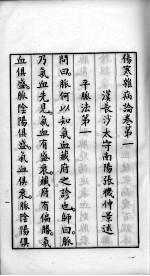 傷寒雜病論卷第一
漢長沙太守南陽張機仲景述
平脈法第一
問曰。脈何以知氣血藏府之診也。師曰。脈
乃氣血先見。氣血有盛衰。藏府有偏勝。氣
血俱盛。脈陰陽俱盛。氣血俱衰。脈陰陽俱